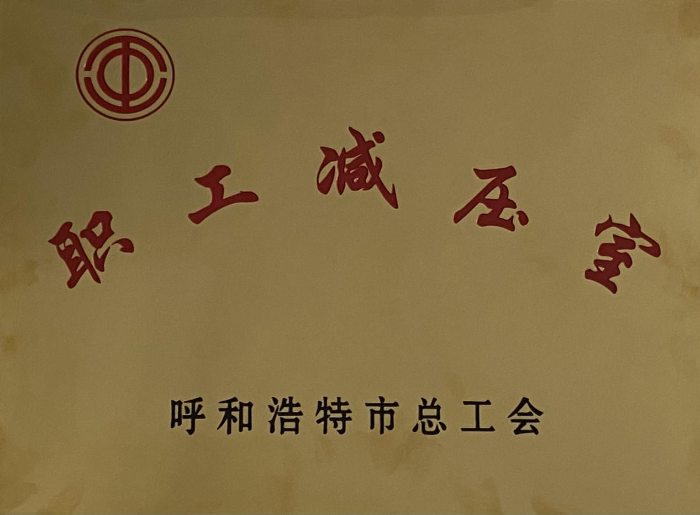 职工减压室
呼和浩特市总工会